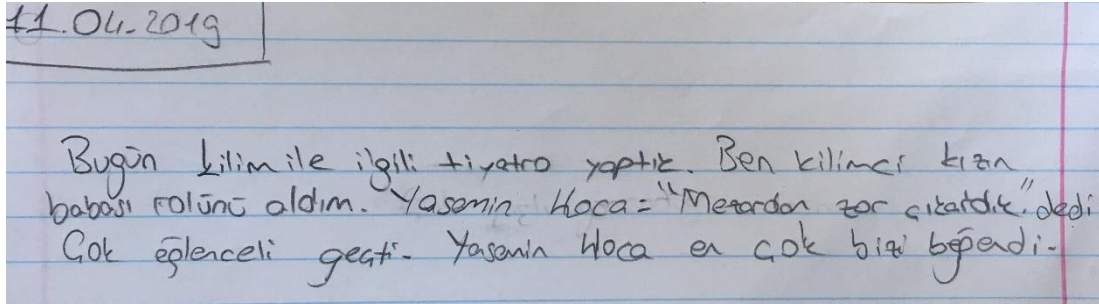 11.04.2019
Bugün kilim ile ilgili tiyatro yaptık. Ben kilimci kızın
babası rolünü aldım. Yasemin Hoca = "Mezardan zor çıkardık." dedi
Çok eğlenceli geçti. Yasemin Hoca en çok bizi beğendi.